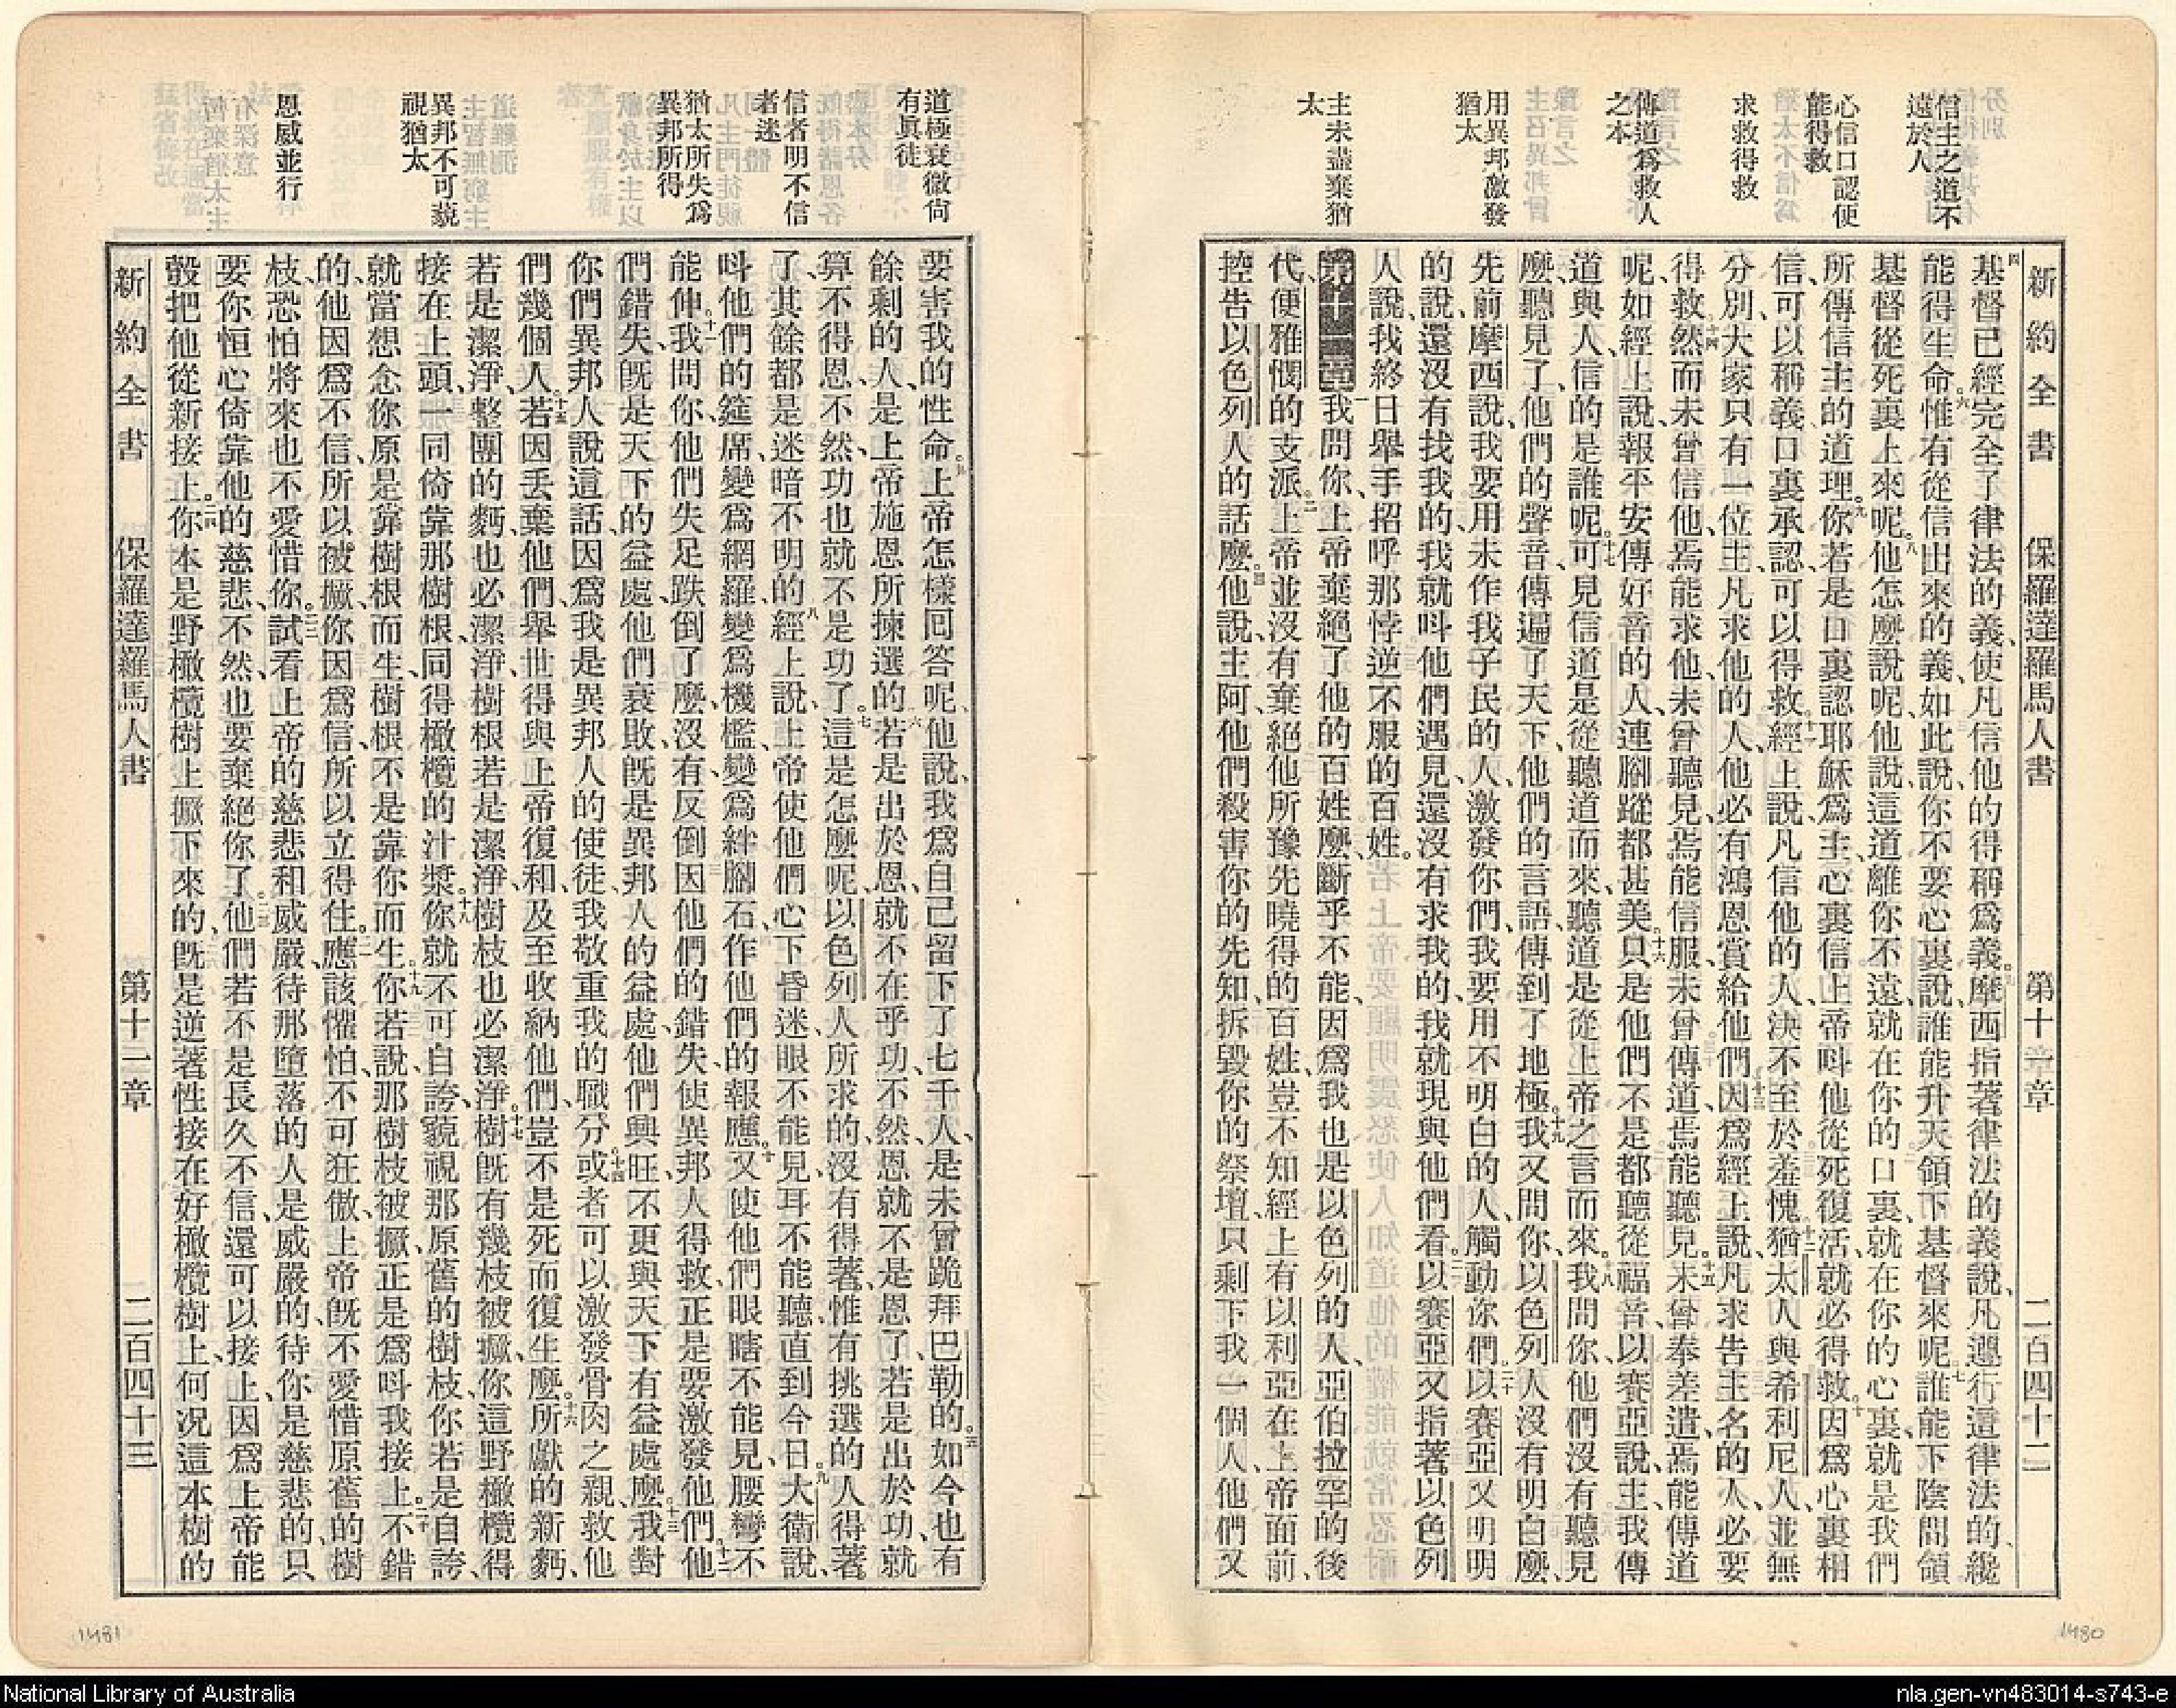 信主之道不
遠於人
心信口認便
能得救
求救得救
傳道爲救人
之本
用異邦激發
猶太
主未盡棄猶
太
新約全書 保羅達羅馬人書 第十章 二百四十二
四基督已經完全了律法的義、使凡信他的得稱爲義。五摩西指著律法的義說、凡遵行這律法的、纔
能得生命。六惟有從信出來的義、如此說、你不要心裏說、誰能升天、領下基督來呢。七誰能下陰間、領
基督從死裏上來呢。八他怎麼說呢、他說、這道離你不遠、就在你的口裏、就在你的心裏、就是我們
所傳信主的道理。九你若是口裏認耶穌爲主、心裏信上帝呌他從死復活、就必得救。十因爲心裏相
信、可以稱義、口裏承認、可以得救。十一經上說、凡信他的人、決不至於羞愧。十二猶太人與希利尼人、並無
分別、大家只有一位主、凡求他的人、他必有鴻恩賞給他們。十三因爲經上說、凡求告主名的人、必要
得救。十四然而未曾信他、焉能求他、未曾聽見、焉能信服、未曾傳道、焉能聽見。十五未曾奉差遣、焉能傳道
呢、如經上說、報平安傳好音的人、連腳蹤都甚美。十六只是他們不是都聽從福音、以賽亞說、主、我傳
道與人、信的是誰呢。十七可見信道是從聽道而來、聽道是從上帝之言而來。十八我問你、他們沒有聽見
麼、聽見了、他們的聲音、傳遍了天下、他們的言語、傳到了地極。十九我又問你、以色列人沒有明白麼、
先前摩西說、我要用未作我子民的人、激發你們、我要用不明白的人、觸動你們。二十以賽亞又明明
的說、還沒有找我的、我就呌他們遇見、還沒有求我的、我就現與他們看。二一以賽亞又指著以色列
人說、我終日舉手招呼那悖逆不服的百姓。
第十一章 一我問你、上帝棄絕了他的百姓麼、斷乎不能、因爲我也是以色列的人、亞伯拉罕的後
代、便雅憫的支派。二上帝並沒有棄絕他所豫先曉得的百姓、豈不知經上有以利亞在上帝面前、
控告以色列人的話麼。三他說、主阿、他們殺害你的先知、拆毀你的祭壇、只剩下我一個人、他們又
道極衰微尙
有眞徒
信者明不信
者迷
猶太所失爲
異邦所得
異邦不可藐
視猶太
恩威並行
要害我的性命。四上帝怎樣回答呢、他說、我爲自己留下了七千人、是未曾跪拜巴勒的。五如今也有
餘剩的人、是上帝施恩所揀選的。六若是出於恩、就不在乎功、不然、恩就不是恩了、若是出於功、就
算不得恩、不然、功也就不是功了。七這是怎麼呢、以色列人所求的、沒有得著、惟有挑選的人得著
了、其餘都是迷暗不明的。八經上說、上帝使他們心下昏迷、眼不能見、耳不能聽、直到今日。九大衛說、
呌他們的筵席、變爲網羅、變爲機檻、變爲絆腳石、作他們的報應。十又使他們眼瞎不能見、腰彎不
能伸。十一我問你、他們失足跌倒了麼、沒有、反倒因他們的錯失、使異邦人得救、正是要激發他們。十二他
們錯失、旣是天下的益處、他們衰敗、旣是異邦人的益處、他們興旺、不更與天下有益處麼。十三我對
你們異邦人說這話、因爲我是異邦人的使徒、我敬重我的職分。十四或者可以激發骨肉之親、救他
們幾個人。十五若因丟棄他們、舉世得與上帝復和、及至收納他們、豈不是死而復生麼。十六所獻的新麪、
若是潔淨、整團的麪也必潔淨、樹根若是潔淨、樹枝也必潔淨。十七樹旣有幾枝被撅、你這野橄欖得
接在上頭、一同倚靠那樹根、同得橄欖的汁漿。十八你就不可自誇、藐視那原舊的樹枝、你若是自誇、
就當想念你原是靠樹根而生、樹根不是靠你而生。十九你若說、那樹枝被撅、正是爲呌我接上。二十不錯
的、他因爲不信、所以被撅、你因爲信、所以立得住。二一應該懼怕、不可狂傲、上帝旣不愛惜原舊的樹
枝、恐怕將來也不愛惜你。二二試看上帝的慈悲和威嚴、待那墮落的人、是威嚴的、待你是慈悲的、只
要你恒心倚靠他的慈悲、不然、也要棄絕你了。二三他們若不是長久不信、還可以接上、因爲上帝能
彀把他從新接上。二四你本是野橄欖樹上撅下來的、旣是逆著性接在好橄欖樹上、何况這本樹的
新約全書 保羅達羅馬人書 第十一章 二百四十三
1481
1480
National Library of Australia
nla.gen-vn483014-s743-e